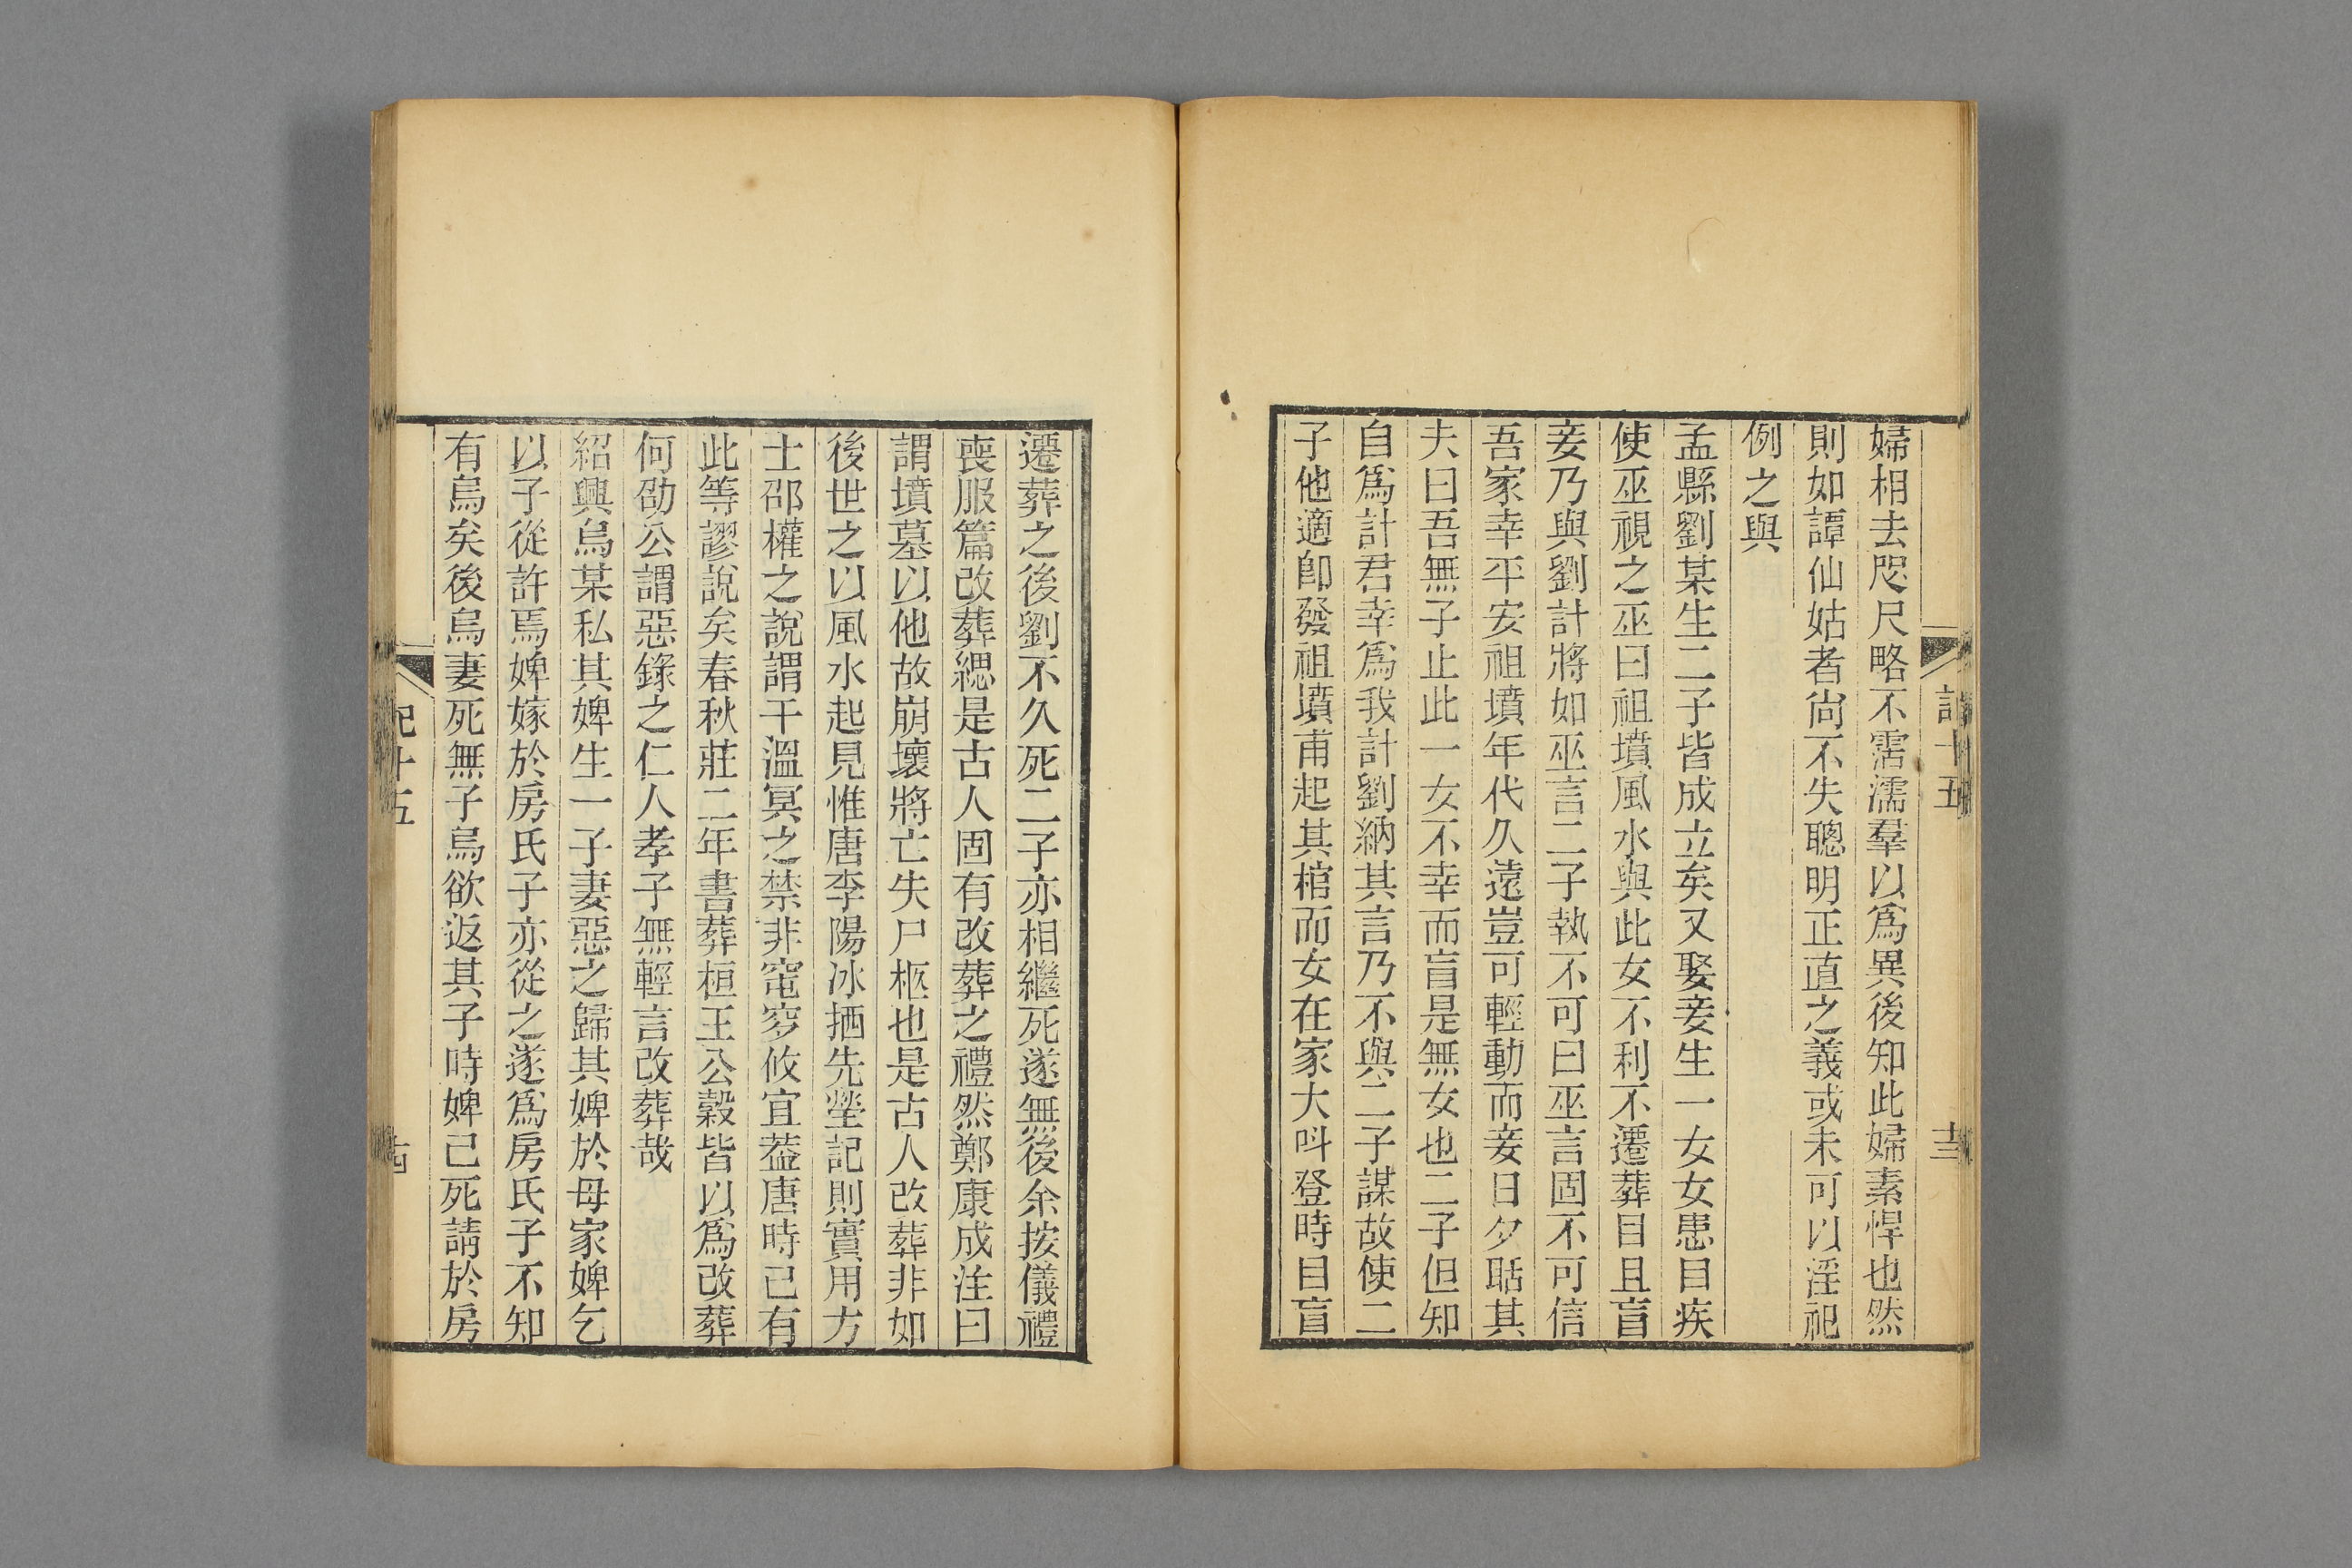 婦相去咫尺略不霑濡羣以爲異後知此婦素悍也然
則如譚仙姑者尙不失聰明正直之義或未可以淫祀
例之與
孟縣劉某生二子皆成立矣又娶妾生一女女患目疾
使巫視之巫曰祖墳風水與此女不利不遷葬目且盲
妾乃與劉計將如巫言二子執不可曰巫言固不可信
吾家幸平安祖墳年代久遠豈可輕動而妾日夕聒其
夫曰吾無子止此一女不幸而盲是無女也二子但知
自爲計君幸爲我計劉納其言乃不與二子謀故使二
子他適卽發祖墳甫起其棺而女在家大呌登時目盲
遷葬之後劉不久死二子亦相繼死遂無後余按儀禮
喪服篇改葬緦是古人固有改葬之禮然鄭康成注曰
謂墳墓以他故崩壞將亡失尸柩也是古人改葬非如
後世之以風水起見惟唐李陽冰拪先塋記則實用方
士邵權之說謂干溫冥之禁非窀穸攸宜葢唐時已有
此等謬說矣春秋莊二年書葬桓王公穀皆以爲改葬
何劭公謂惡錄之仁人孝子無輕言改葬哉
紹興烏某私其婢生一子妻惡之歸其婢於母家婢乞
以子從許焉婢嫁於房氏子亦從之遂爲房氏子不知
有烏矣後烏妻死無子烏欲返其子時婢已死請於房
十五